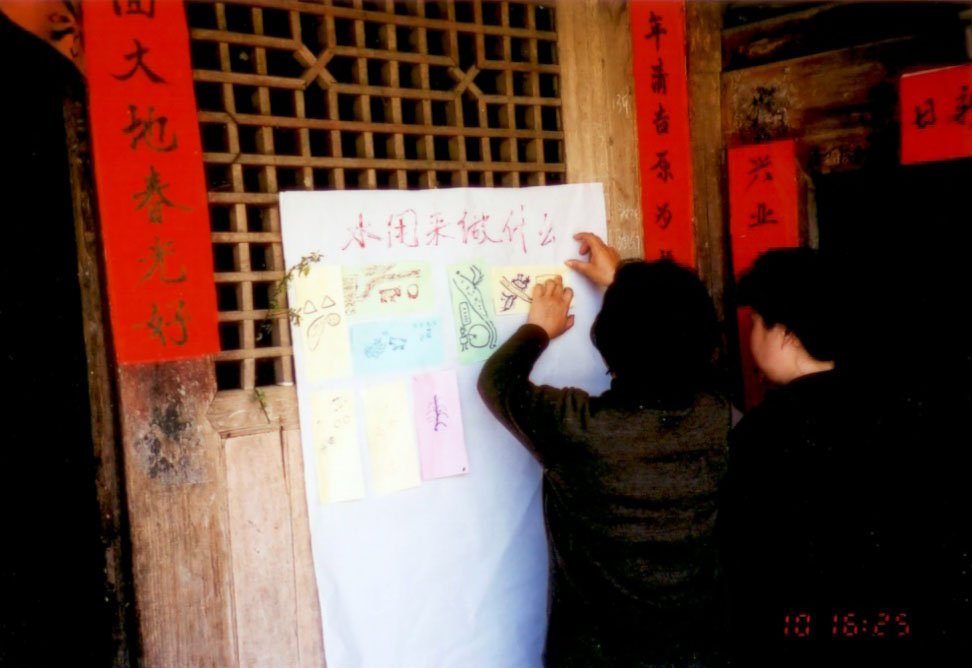 回大地春光好
水用来做什么
年清吉原为
兴业
日
10 16:25